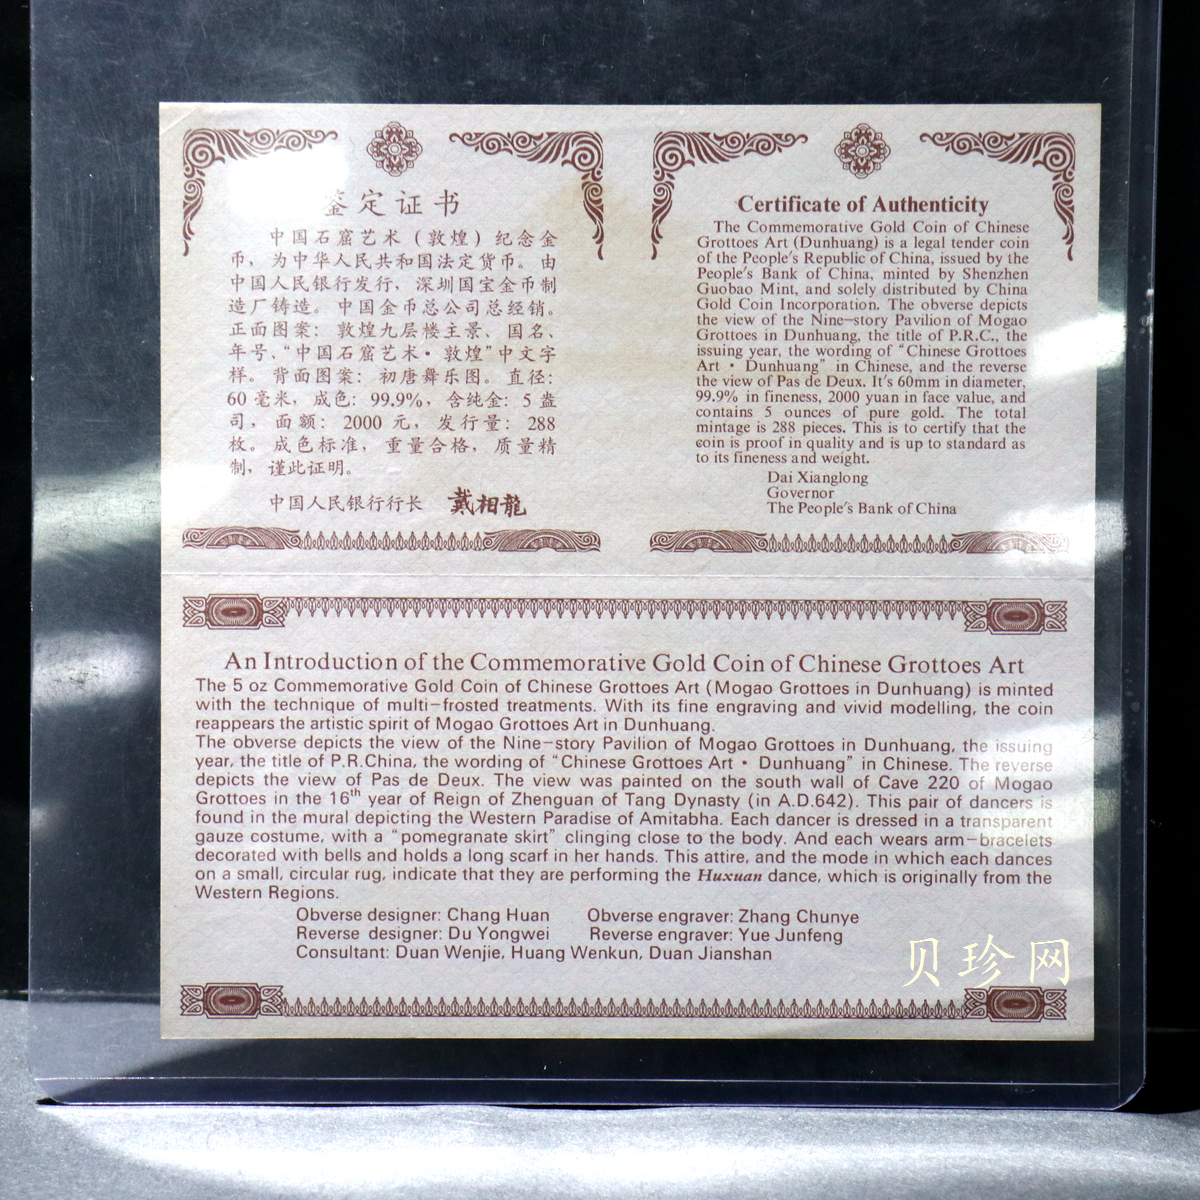 鉴定证书
中国石窟艺术（敦煌）纪念金
币，为中华人民共和国法定货币。由
中国人民银行发行，深圳国宝金币制
造厂铸造。中国金币总公司总经销。
正面图案：敦煌九层楼主景、国名、
年号、“中国石窟艺术·敦煌”中文字
样。背面图案：初唐舞乐图。直径：
60毫米，成色：99.9%，含纯金：5盎
司，面额：2000元，发行量：288
枚。成色标准，重量合格，质量精
制，谨此证明。
中国人民银行行长 戴相龍
Certificate of Authenticity
The Commemorative Gold Coin of Chinese
Grottoes Art (Dunhuang) is a legal tender coin
of the People's Republic of China, issued by the
People's Bank of China, minted by Shenzhen
Guobao Mint, and solely distributed by China
Gold Coin Incorporation. The obverse depicts
the view of the Nine-story Pavilion of Mogao
Grottoes in Dunhuang, the title of P.R.C., the
issuing year, the wording of “Chinese Grottoes
Art · Dunhuang” in Chinese, and the reverse
the view of Pas de Deux. It's 60mm in diameter,
99.9% in fineness, 2000 yuan in face value, and
contains 5 ounces of pure gold. The total
mintage is 288 pieces. This is to certify that the
coin is proof in quality and is up to standard as
to its fineness and weight.
Dai Xianglong
Governor
The People's Bank of China
An Introduction of the Commemorative Gold Coin of Chinese Grottoes Art
The 5 oz Commemorative Gold Coin of Chinese Grottoes Art (Mogao Grottoes in Dunhuang) is minted
with the technique of multi-frosted treatments. With its fine engraving and vivid modelling, the coin
reappears the artistic spirit of Mogao Grottoes Art in Dunhuang.
The obverse depicts the view of the Nine-story Pavilion of Mogao Grottoes in Dunhuang, the issuing
year, the title of P.R.China, the wording of “Chinese Grottoes Art · Dunhuang” in Chinese. The reverse
depicts the view of Pas de Deux. The view was painted on the south wall of Cave 220 of Mogao
Grottoes in the 16th year of Reign of Zhenguan of Tang Dynasty (in A.D.642). This pair of dancers is
found in the mural depicting the Western Paradise of Amitabha. Each dancer is dressed in a transparent
gauze costume, with a “pomegranate skirt” clinging close to the body. And each wears arm-bracelets
decorated with bells and holds a long scarf in her hands. This attire, and the mode in which each dances
on a small, circular rug, indicate that they are performing the Huxuan dance, which is originally from the
Western Regions.
Obverse designer: Chang Huan Obverse engraver: Zhang Chunye
Reverse designer: Du Yongwei Reverse engraver: Yue Junfeng
Consultant: Duan Wenjie, Huang Wenkun, Duan Jianshan
贝珍网